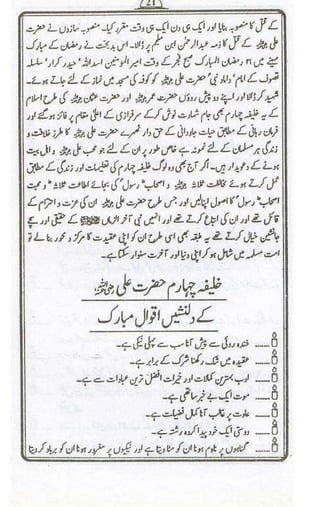 21
کے قتل کا منصوبہ بنایا اور ایک ہی دن ایک ہی وقت مقرر کیا۔ منصوبہ سازوں نے حضرت
علی کے قتل کا ذمہ عبدالرحمن ابن ملجم پر ڈالا۔ اس بدبخت نے رمضان کے مبارک
مہینے میں ۲۱ رمضان المبارک صبح فجر کے وقت امیر المومنین اسد اللہ حیدر کرار سلسلہ
تصوف کے امام داماد نبی حضرت علی کو کوفہ کی مسجد میں نماز کے لئے جاتے ہوئے
شہید کر ڈالا اور اپنے دو پیش روؤں حضرت عمر اور حضرت عثمان کی طرح اسلام
کے یہ خلیفہ چہارم بھی جام شہادت نوش کر کے سرفرازی کے اعلیٰ مقام پر فائز ہو گئے اور
قرآن ربانی کے مطابق حیات جاودانی کے حق دار ٹھہرے حضرت علی کا طرز خلافت و
زندگی ہر مسلمان کے لئے نمونہ ہے خاص طور پر ان کے لئے جو محب علی و اہل بیت
ہونے کے دعویدار ہیں۔ اگر آج بھی وہ لوگ خلیفہ چہارم کی تعلیمات اور زندگی کے مطابق
عمل کرتے ہوئے خلفائے ثلاثہ و اصحاب رسول کی بجائے اطاعت ثلاثہ و محبت
اصحاب رسول کا اصول اپنالیں اور جس طرح حضرت علی ان کی عزت و احترام کے
قائل تھے اور ان کی اتباع کرتے تھے اور انہیں نبی آخر الزماں ﷺ کے حقیقی اور سچے
جانشین خیال کرتے تھے یہ طبقہ بھی اسی طرح ان کو اپنی عقیدت کا مرکز و محور بنا لے تو
امت مسلمہ میں شامل ہو کر اپنی دنیا اور آخرت سنوار سکتا ہے۔
خلیفہ چہارم حضرت علی
کے دلنشیں اقوال مبارک
خندہ روئی سے پیش آنا سب سے پہلی نیکی ہے۔
عقیدہ میں شک رکھنا شرک کے برابر ہے۔
ادب بہترین کمالات اور خیرات افضل ترین عبادات سے ہے۔
موت ایک بے خبر ساتھی ہے۔
عادت پر غالب آنا کمال فضیلت ہے۔
دوستی ایک خود پیدا کردہ رشتہ ہے۔
گناہوں پر نادم ہونا ان کو مٹا دیتا ہے اور نیکیوں پر مغرور ہونا ان کو برباد کر دیتا